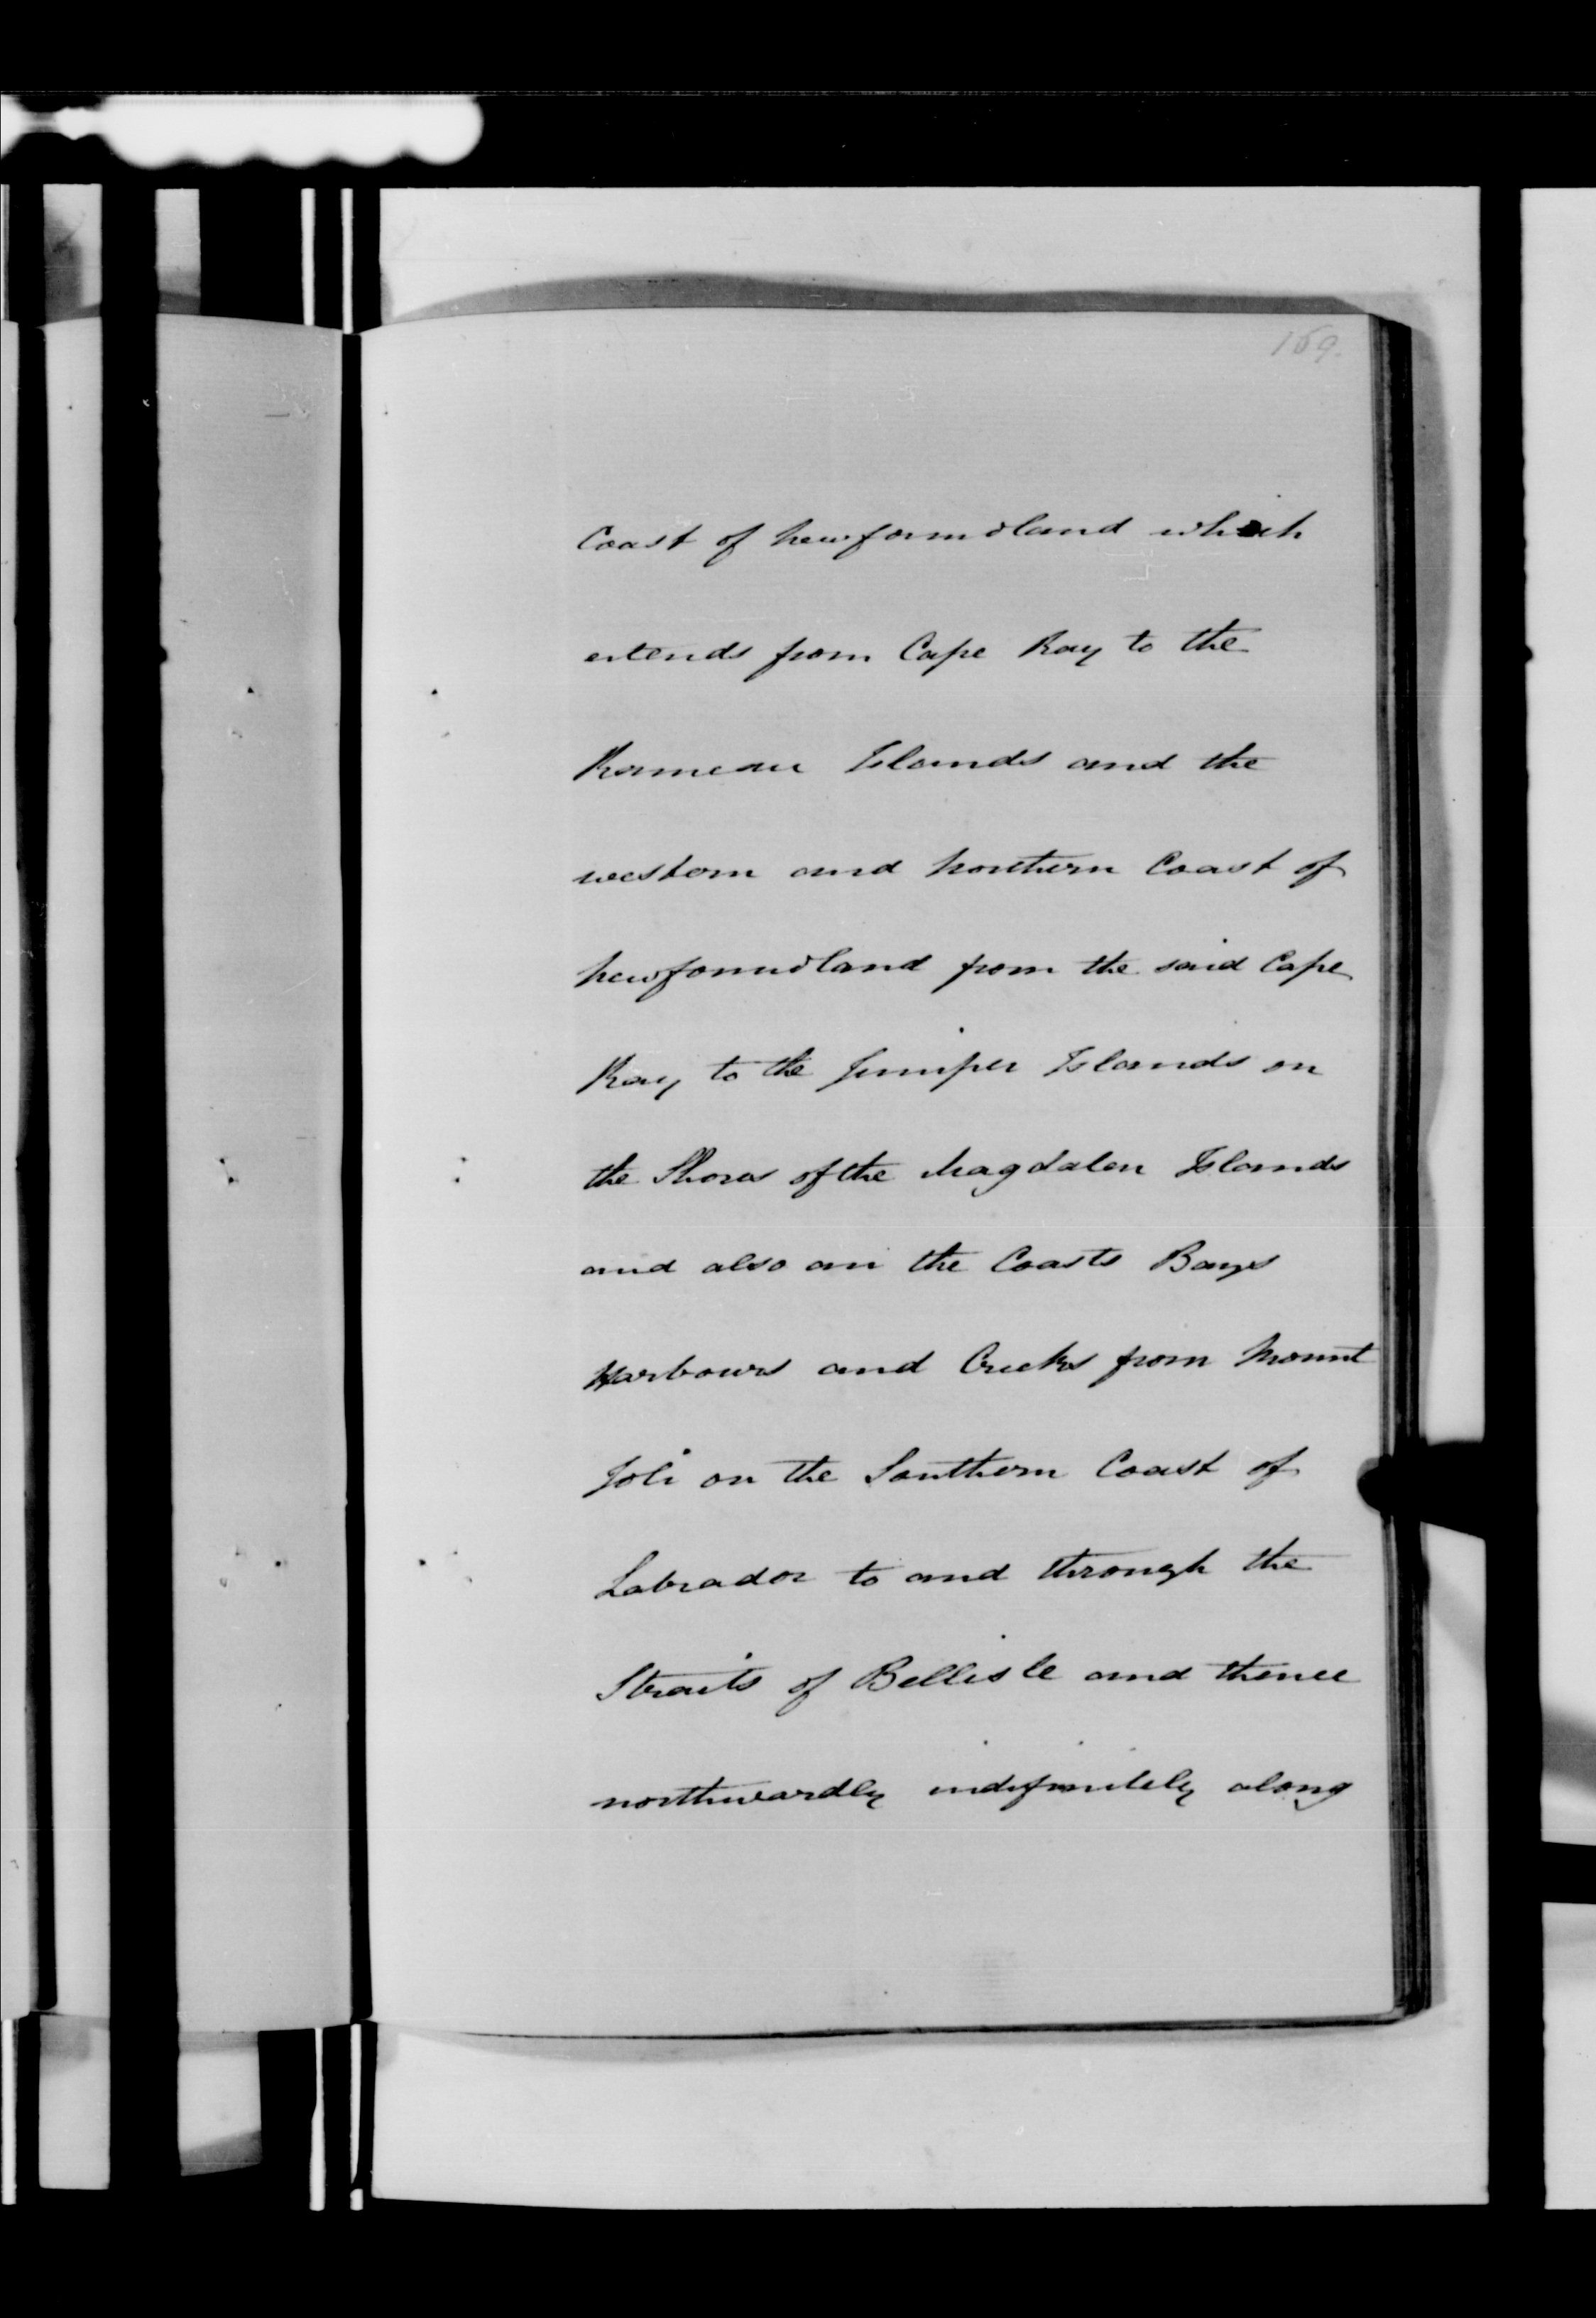 169.
Coast of Newfoundland which
extends from Cape Ray to the
Rameau Islands and the
western and Northern Coast of
Newfoundland from the said Cape
Ray to the Juniper Islands on
the Shores of the Magdalen Islands
and also on the Coasts Bays
Harbours and Creeks from Mount
Joli on the Southern Coast of
Labrador to and through the
Straits of Bellisle and thence
northwardly indefinitely along